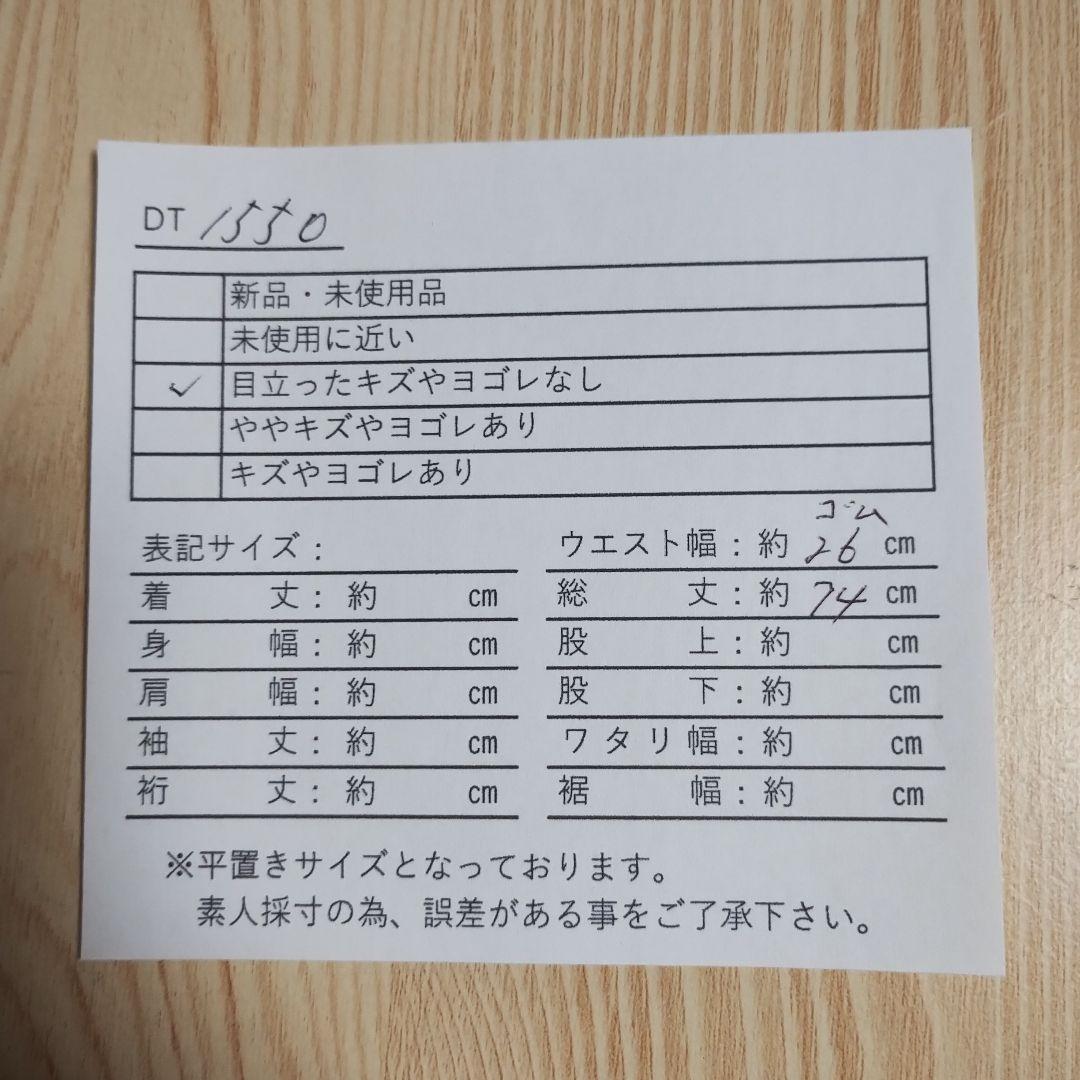 DT 1550
新品・未使用品
未使用に近い
✓ 目立ったキズやヨゴレなし
ややキズやヨゴレあり
キズやヨゴレあり
表記サイズ：
着丈：約 cm
身幅：約 cm
肩幅：約 cm
袖丈：約 cm
裄丈：約 cm
ゴム
ウエスト幅：約 26 cm
総丈：約 74 cm
股上：約 cm
股下：約 cm
ワタリ幅：約 cm
裾幅：約 cm
※平置きサイズとなっております。
素人採寸の為、誤差がある事をご了承下さい。